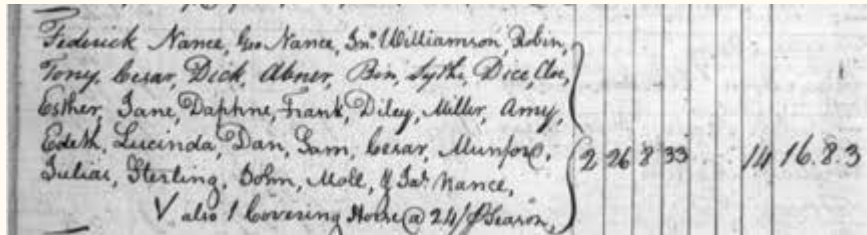 Frederick Nance, Geo Nance, Jno. Williamson, Robin,
Tony, Cesar, Dick, Abner, Ben, Sythe, Dice, Cloe,
Esther, Jane, Daphne, Frank, Diley, Miller, Amy,
Edith, Lucinda, Dan, Sam, Cesar, Munford,
Julias, Sterling, John, Moll, & Jas. Nance, 2 26 8 33 14 16.8.3
V also 1 Covering Horse @ 24/ Season,